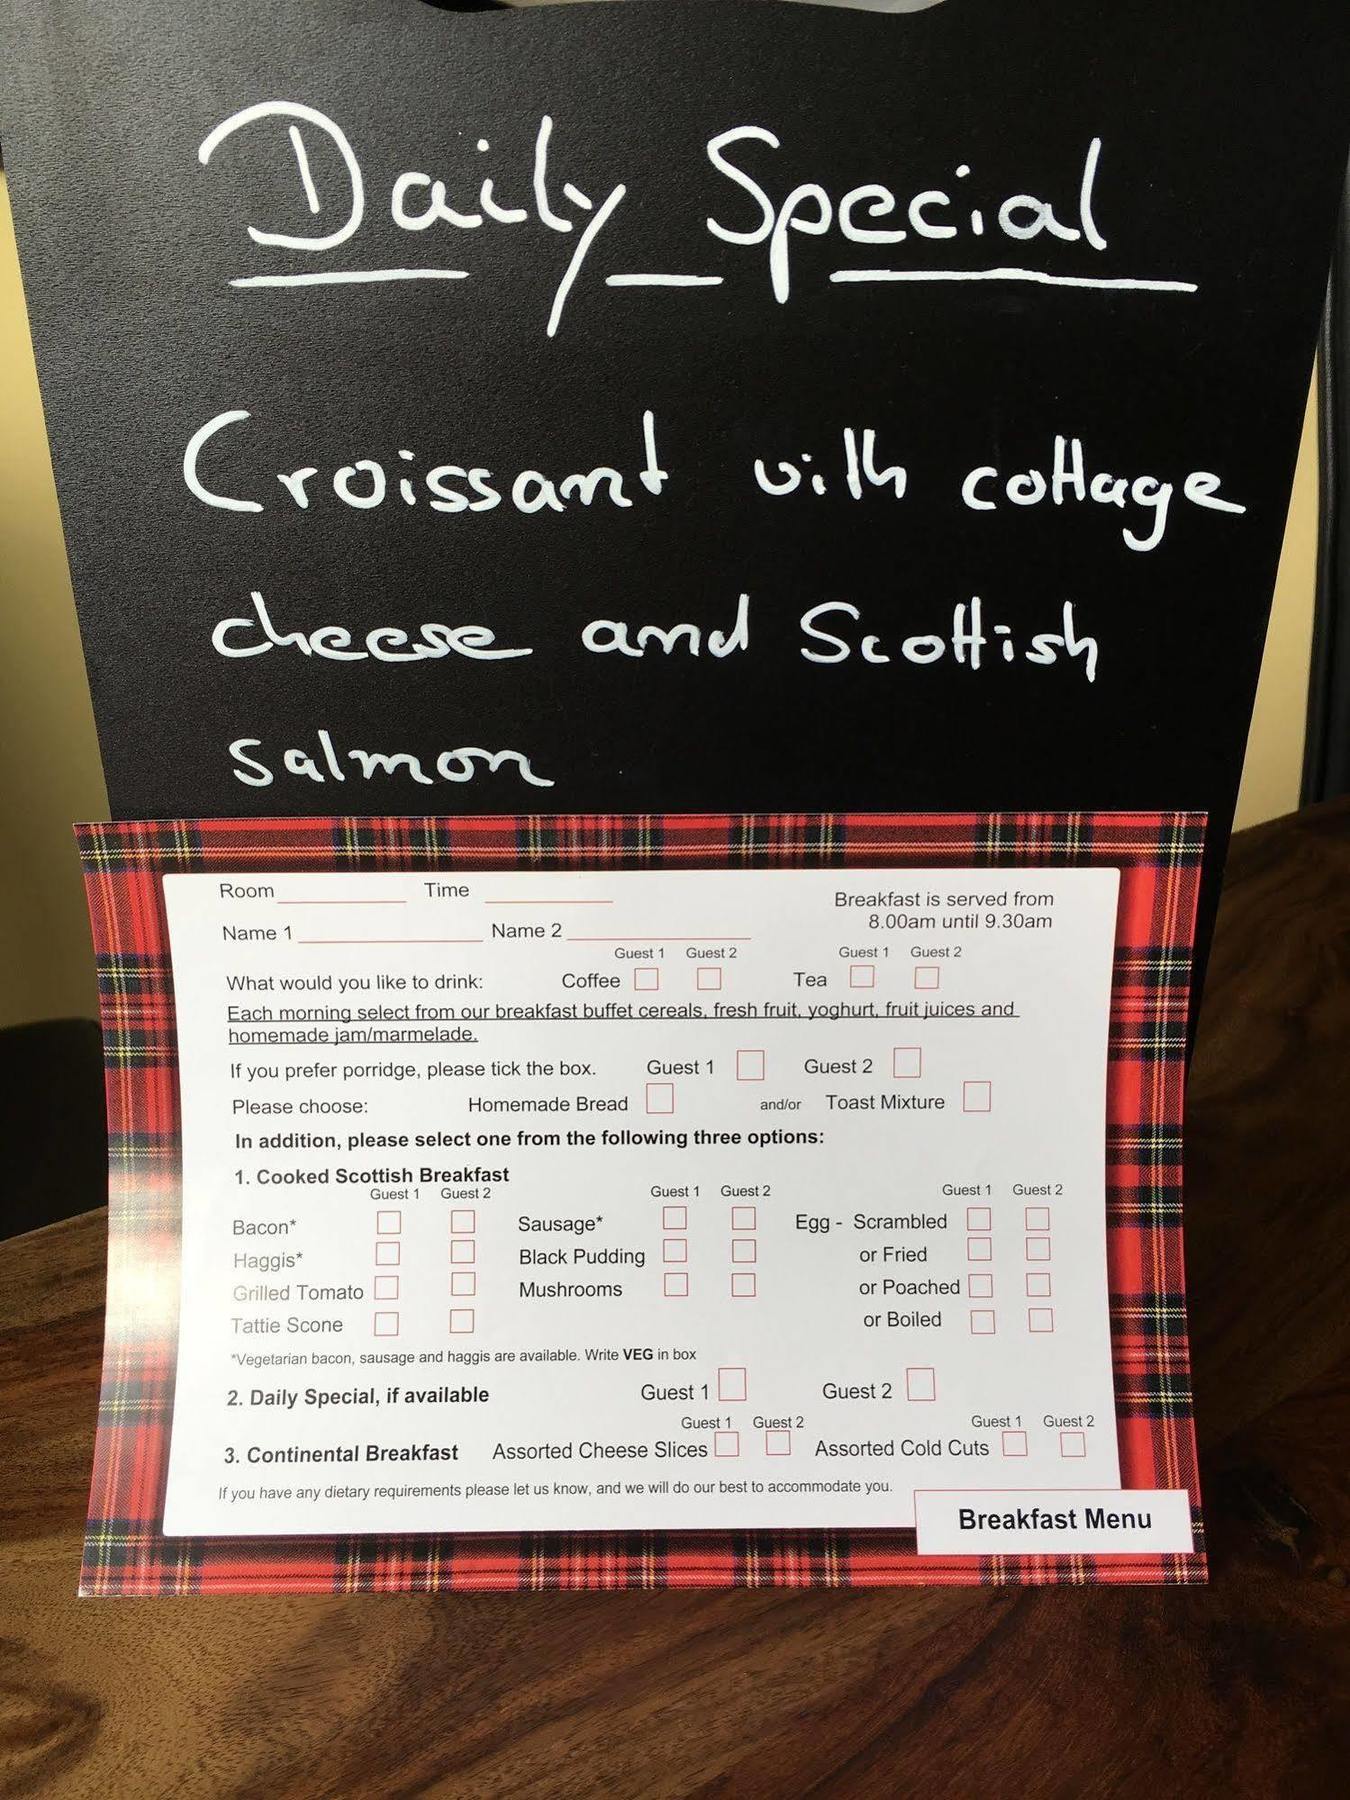 Daily Special
Croissant with cottage
cheese and Scottish
salmon
Room Time
Breakfast is served from
8.00am until 9.30am
Name 1 Name 2
Guest 1 Guest 2 Guest 1 Guest 2
What would you like to drink: Coffee Tea
Each morning select from our breakfast buffet cereals, fresh fruit, yoghurt, fruit juices and
homemade jam/marmelade.
If you prefer porridge, please tick the box. Guest 1 Guest 2
Please choose: Homemade Bread and/or Toast Mixture
In addition, please select one from the following three options:
1. Cooked Scottish Breakfast
Guest 1 Guest 2 Guest 1 Guest 2 Guest 1 Guest 2
Bacon* Sausage* Egg - Scrambled
Haggis* Black Pudding or Fried
Grilled Tomato Mushrooms or Poached
Tattie Scone or Boiled
*Vegetarian bacon, sausage and haggis are available. Write VEG in box
2. Daily Special, if available Guest 1 Guest 2
Guest 1 Guest 2 Guest 1 Guest 2
3. Continental Breakfast Assorted Cheese Slices Assorted Cold Cuts
If you have any dietary requirements please let us know, and we will do our best to accommodate you.
Breakfast Menu